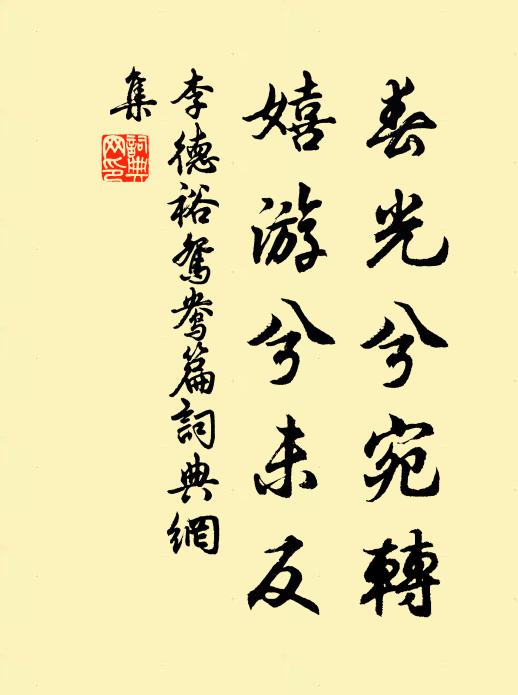 春光兮宛轉
嬉游兮未反
李德裕鴛鴦篇詞典網
集
詞典
网印